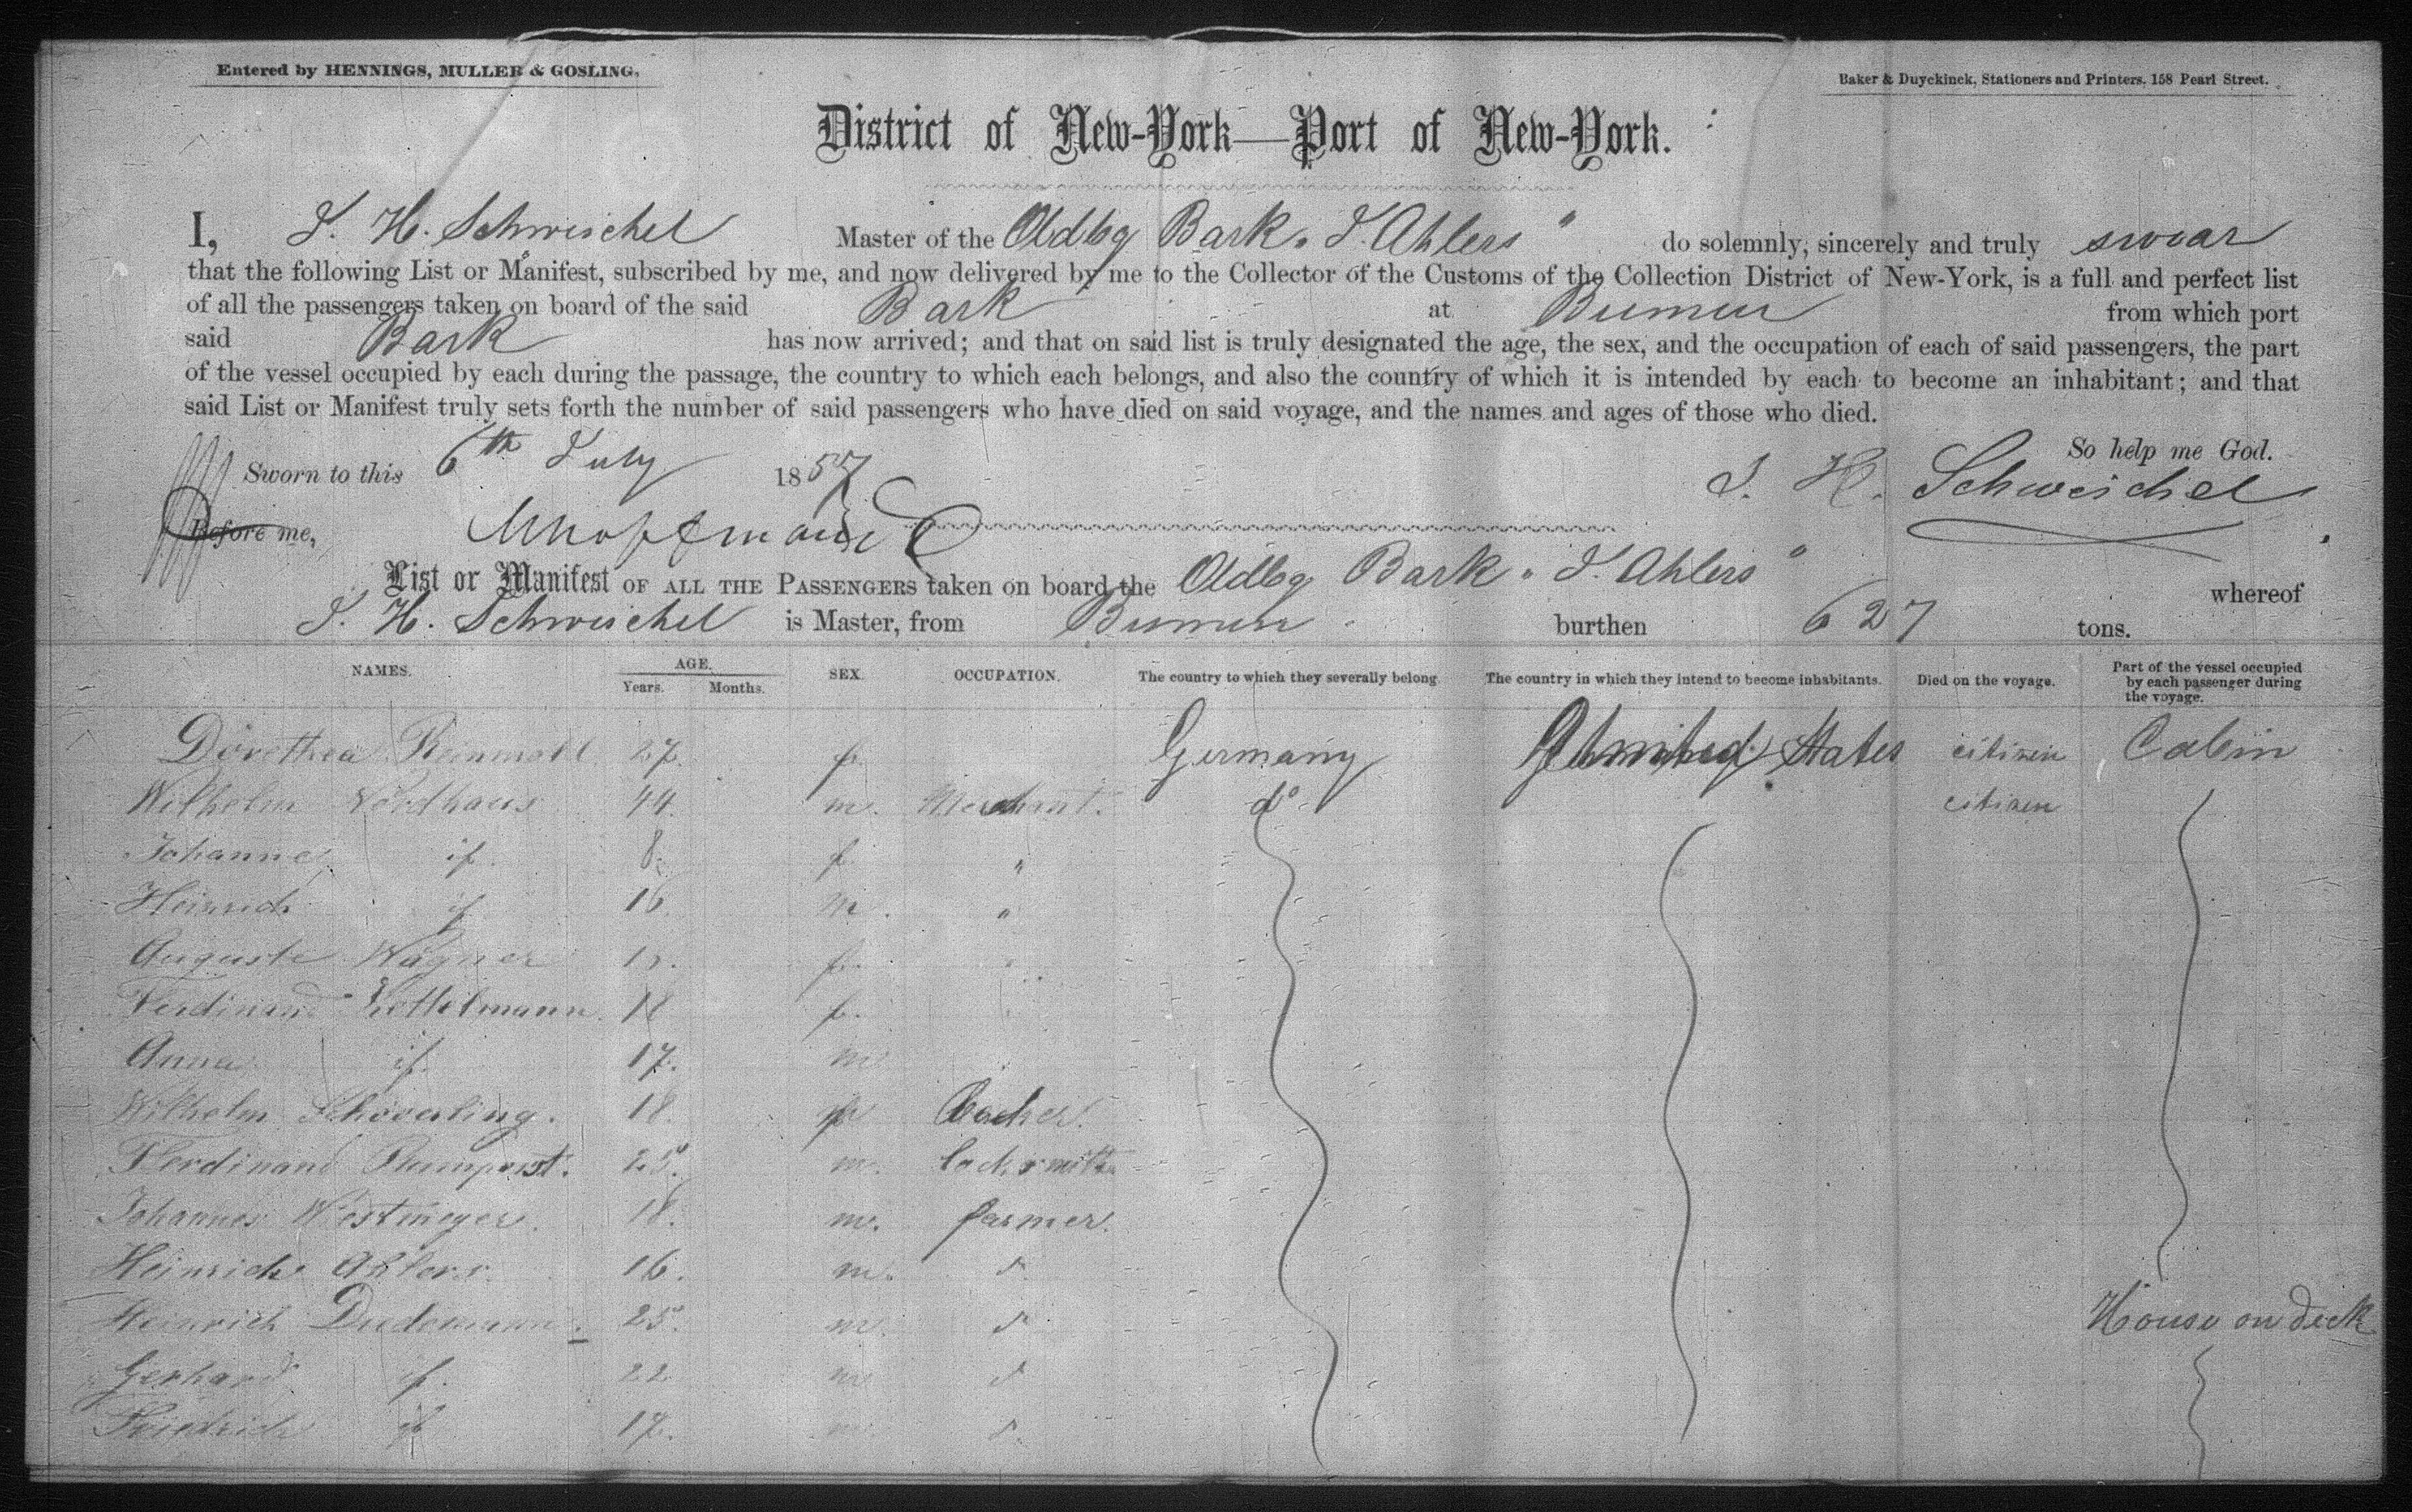 Entered by HENNINGS, MULLER & GOSLING,
Baker & Duyckinck, Stationers and Printers, 158 Pearl Street.
District of New-York—Port of New-York.
I, J. H. Schweichel Master of the Oldbg Bark „J. Ahlers" do solemnly, sincerely and truly swear
that the following List or Manifest, subscribed by me, and now delivered by me to the Collector of the Customs of the Collection District of New-York, is a full and perfect list
of all the passengers taken on board of the said Bark at Bremen from which port
said Bark has now arrived; and that on said list is truly designated the age, the sex, and the occupation of each of said passengers, the part
of the vessel occupied by each during the passage, the country to which each belongs, and also the country of which it is intended by each to become an inhabitant; and that
said List or Manifest truly sets forth the number of said passengers who have died on said voyage, and the names and ages of those who died.
So help me God.
Sworn to this 6th July 1857 J. H. Schweichel
Before me,
List or Manifest OF ALL THE PASSENGERS taken on board the Oldbg Bark „J. Ahlers" whereof
J. H. Schweichel is Master, from Bremen burthen 627 tons.
NAMES. AGE. Years. Months. SEX. OCCUPATION. The country to which they severally belong. The country in which they intend to become inhabitants. Died on the voyage. Part of the vessel occupied by each passenger during the voyage.
Dorothea 27. f. Germany United States citizen Cabin
Wilhelm Nordhaus 44. m. Merchant. do citizen
Johanne 8. f. "
Heinrich 16 m. "
Auguste Wagner f.
Ferdinand 18 f.
Anna 17. m
Wilhelm Schoverling. 18.
Ferdinand 25. m. locksmith
Johannes Westmeyer. 18. m. farmer.
Heinrich Ahlers. 16. m. d
Heinrich Dudemann. 25. m. d House on deck
Gerhard 22 m d
Friedrich 17. m d